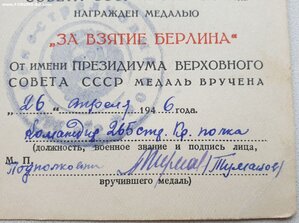 НАГРАЖДЕН МЕДАЛЬЮ
„ЗА ВЗЯТИЕ БЕРЛИНА"
ОТ ИМЕНИ ПРЕЗИДИУМА ВЕРХОВНОГО
СОВЕТА СССР МЕДАЛЬ ВРУЧЕНА
„26" апреля 1946 года.
Командир 265 стр. Кр. полка
(должность, военное звание и подпись лица,
М. П.
Подполковник
вручившего медаль)